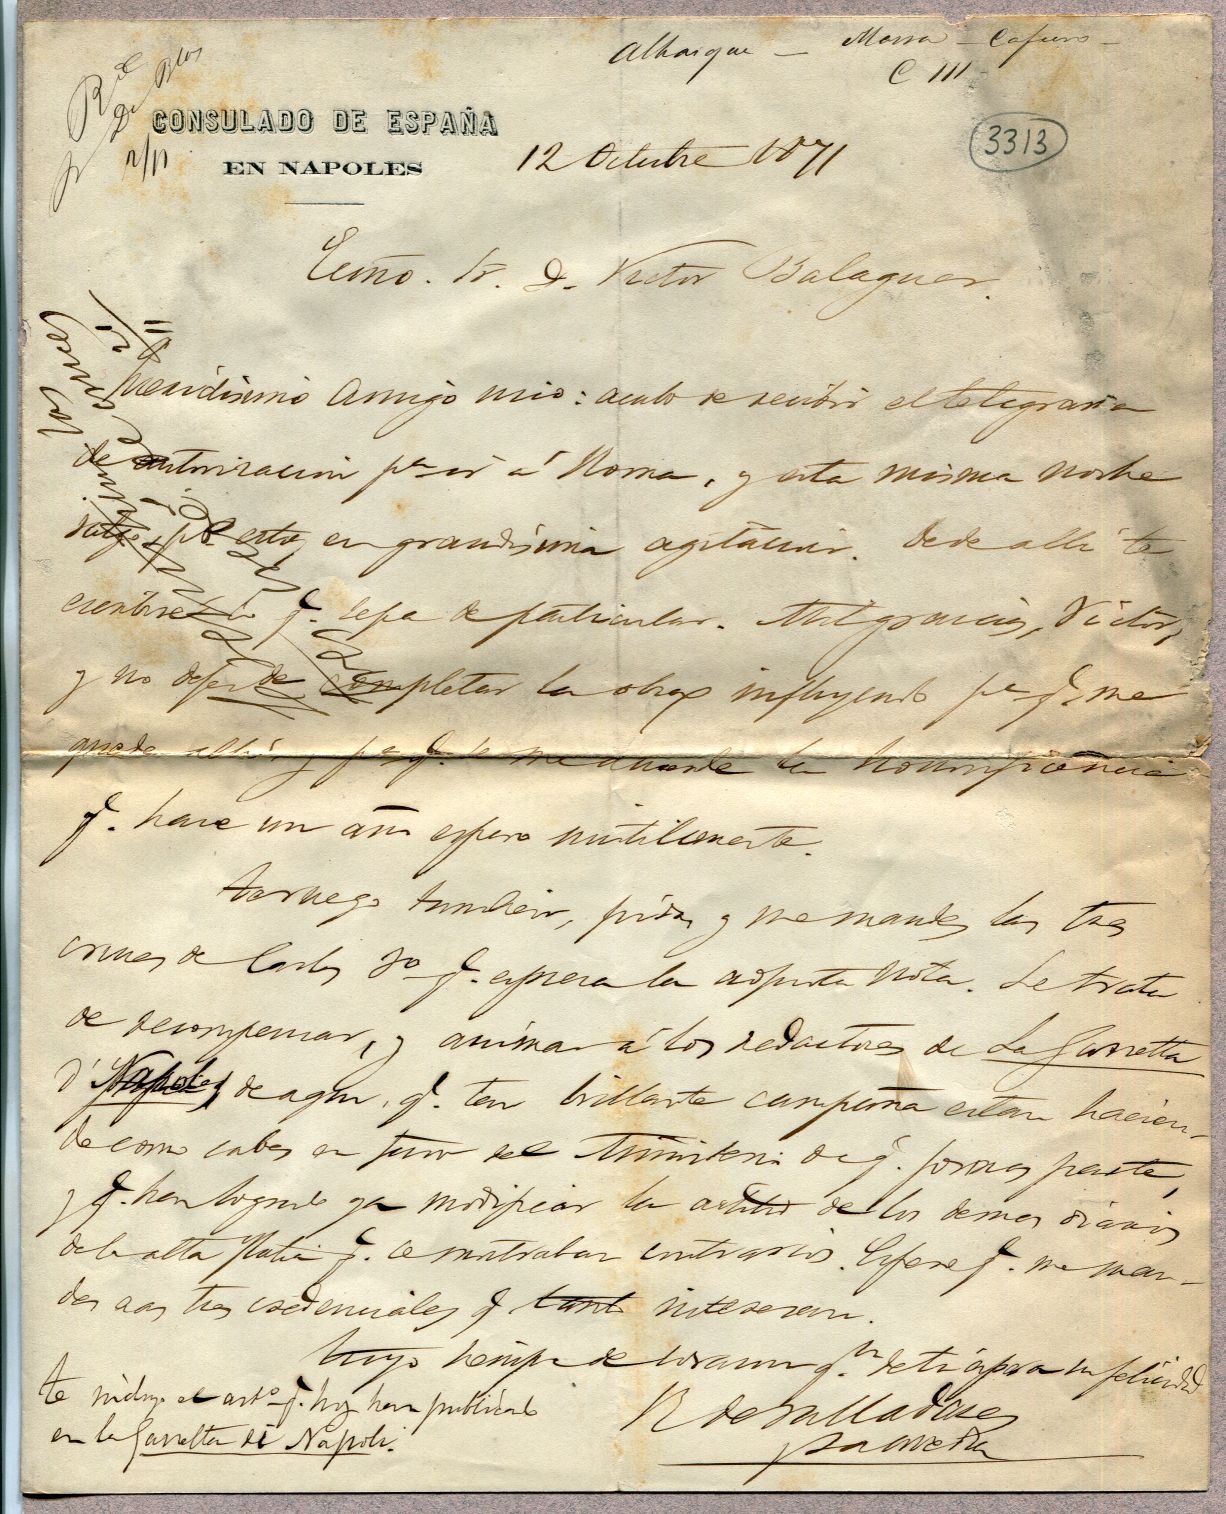 Albarque - Massa - Cafiero -
C III
3313
CONSULADO DE ESPAÑA
EN NAPOLES
2/11
12 Octubre 1871
Exmo. Sr. D. Victor Balaguer.
Queridisimo amigo mio: acabo de recibir el telegrama
de autorizacion pa ir á Roma, y esta misma noche
salgo, pr esto, en grandisima agitacion. Desde alli te
escribiré lo q. sepa de particular. Mil gracias, Victor,
y no dejes de completar la obra influyendo pa q. me
quede alli y pa q. se me mande la
q. hace un año espero inutilmente.
Te ruego tambien, pidas y me mandes las tres
cruces de Carlos 3o q. espresa la adjunta nota. Se trata
de recompensar, y animar á los redactores de La Gazzetta
di Napoles de aqui, q. tan brillante campaña estan hacien-
do como sabes en favor del Ministerio de q. formas parte,
y q. han logrado ya modificar la actitud de los demas diarios
de la alta Italia q. se mostraban contrarios. Espero q. me man-
des las tres credenciales q. tanto interesan.
Tuyo siempre de corazon qn te desea felicidad
R de Valladares
Saavedra
Te incluyo el arto q. hoy han publicado
en la Gazzetta di Napoli.